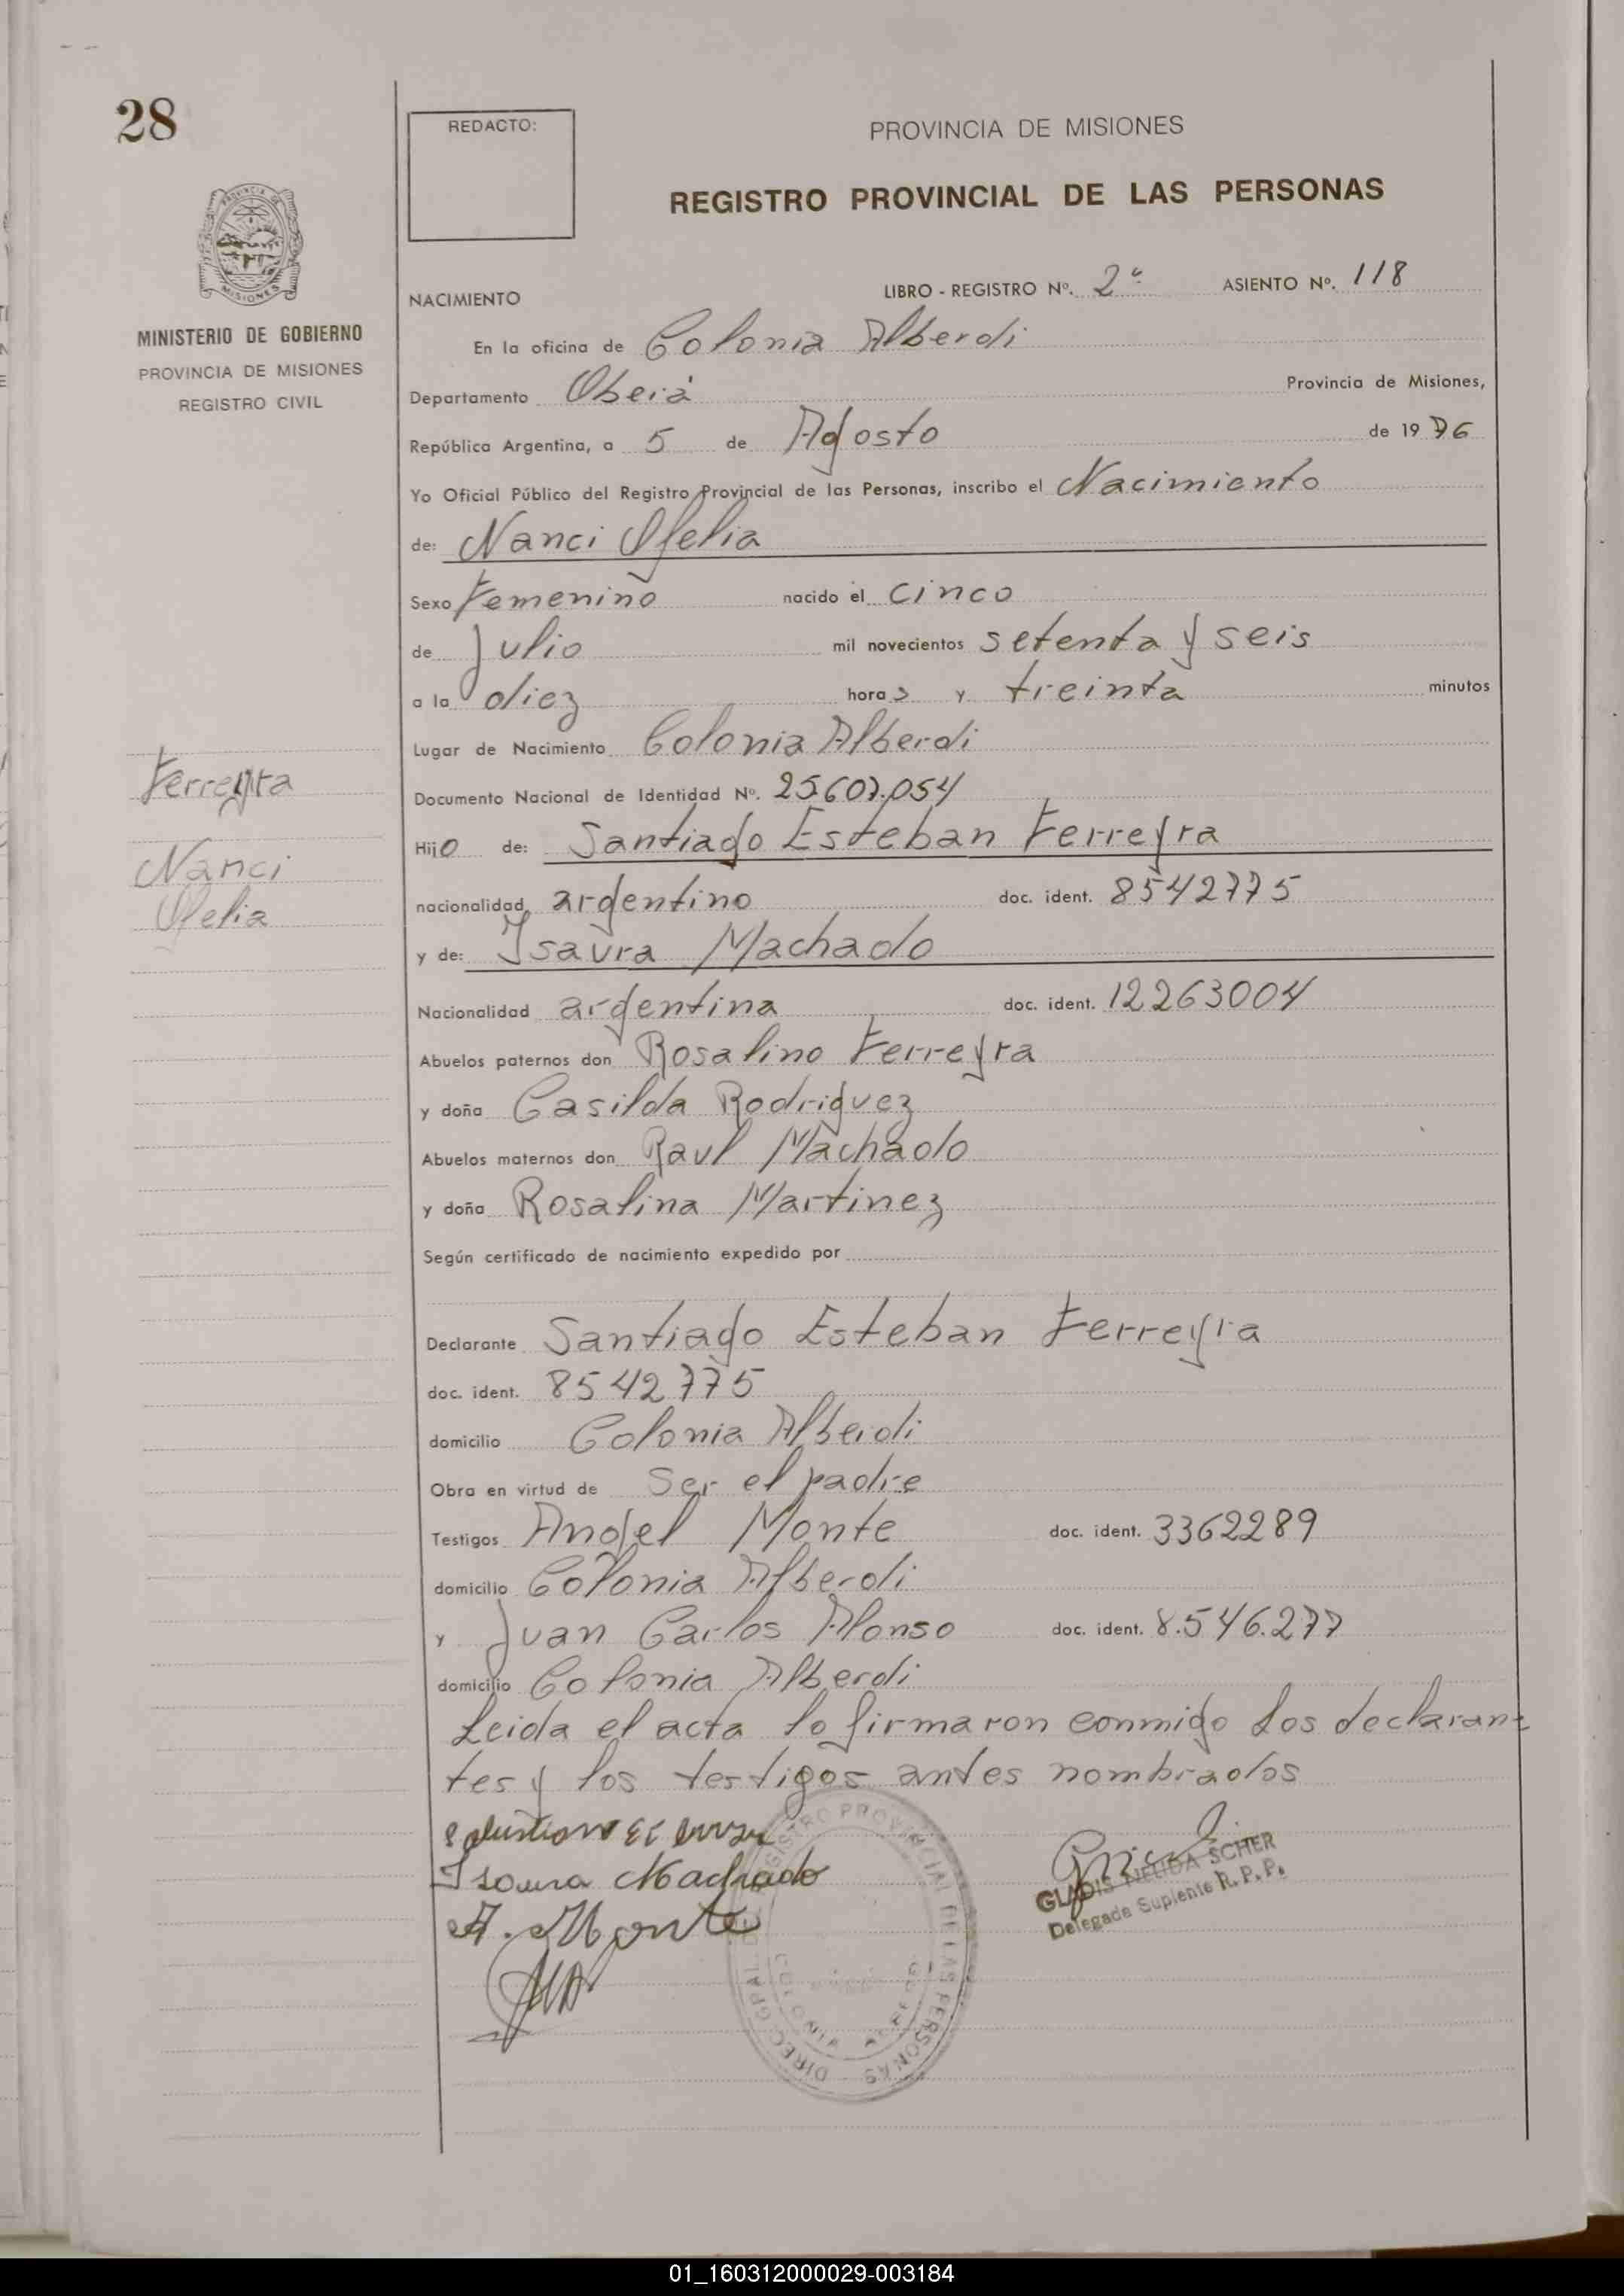 28
REDACTO:
PROVINCIA DE MISIONES
REGISTRO PROVINCIAL DE LAS PERSONAS
MISIONES
MINISTERIO DE GOBIERNO
PROVINCIA DE MISIONES
REGISTRO CIVIL
NACIMIENTO
LIBRO - REGISTRO Nº. 2º ASIENTO Nº. 118
En la oficina de Colonia Alberdi
Departamento Oberá Provincia de Misiones,
República Argentina, a 5 de Agosto de 1976
Yo Oficial Público del Registro Provincial de las Personas, inscribo el Nacimiento
de: Nanci Ofelia
Sexo Femenino nacido el cinco
de Julio mil novecientos setenta y seis
a la diez horas y treinta minutos
Lugar de Nacimiento Colonia Alberdi
Ferreyra
Nanci
Ofelia
Documento Nacional de Identidad Nº. 25.607.054
Hijo de: Santiago Esteban Ferreyra
nacionalidad argentino doc. ident. 8542775
y de: Isaura Machado
Nacionalidad argentina doc. ident. 12263004
Abuelos paternos don Rosalino Ferreyra
y doña Casilda Rodriguez
Abuelos maternos don Raul Machado
y doña Rosalina Martinez
Según certificado de nacimiento expedido por
Declarante Santiago Esteban Ferreyra
doc. ident. 8542775
domicilio Colonia Alberdi
Obra en virtud de Ser el padre
Testigos Angel Monte doc. ident. 3362289
domicilio Colonia Alberdi
y Juan Carlos Alonso doc. ident. 8.546.277
domicilio Colonia Alberdi
Leida el acta lo firmaron conmigo los declaran-
tes y los testigos antes nombrados
Isaura Machado
A. Monte
GLADIS NELIDA SCHER
Delegada Suplente R.P.P.
DIREC. GRAL. DEL REGISTRO PROVINCIAL DE LAS PERSONAS
COLONIA ALBERDI
01_160312000029-003184